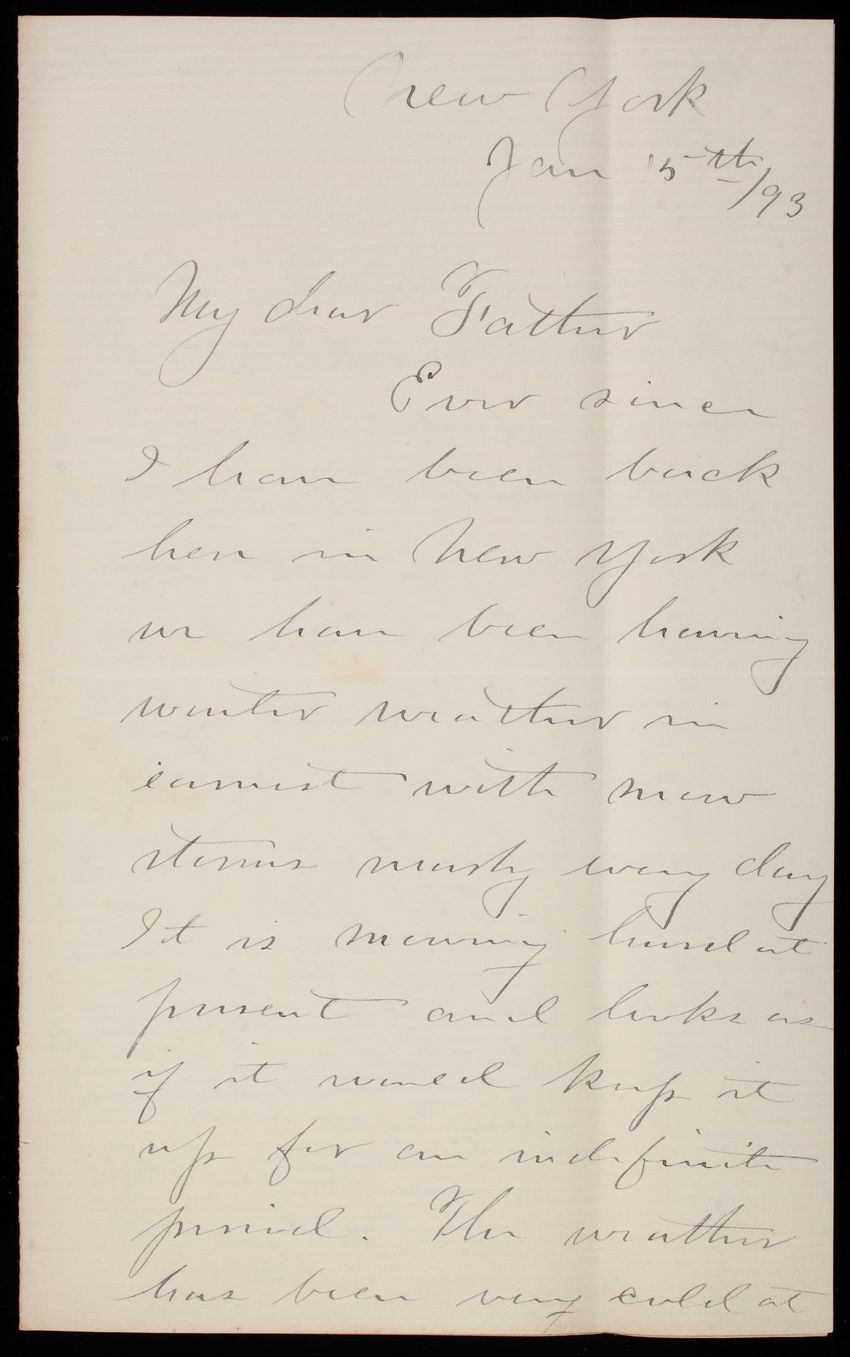 New York
Jan 15th/93
My dear Father
Ever since
I have been back
here in New York
we have been having
winter weather in
earnest with snow
storms nearly every day
It is snowing hard at
present and looks as
if it would keep it
up for an indefinite
period. The weather
has been very cold at